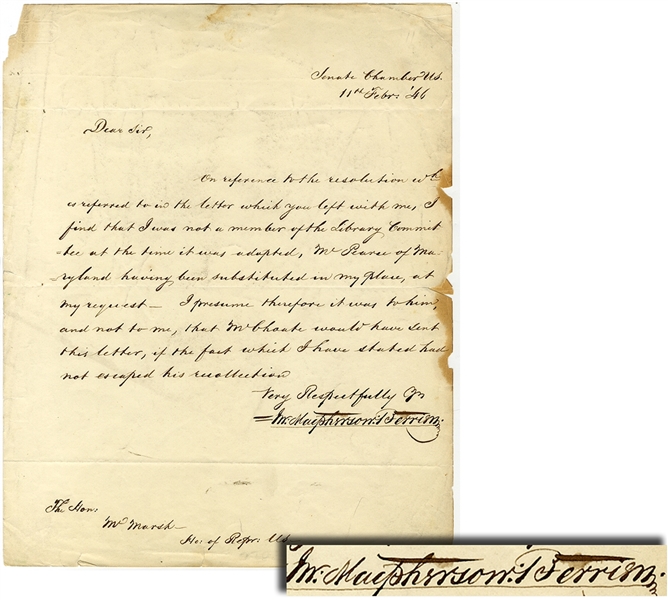 Senate Chamber Us.
11th Febr: '46
Dear Sir,
On reference to the resolution wh
is referred to in the letter which you left with me, I
find that I was not a member of the Library Commit
-tee at the time it was adopted, Mr Pearce of Ma-
ryland having been substituted in my place, at
my request — I presume therefore it was to him,
and not to me, that Mr Choate would have sent
this letter, if the fact which I have stated had
not escaped his recollection
Very Respectfully Yr
Jn: Macpherson: Berrien.
The Hon:
Mr Marsh —
Ho: of Repr: Us
Jn: Macpherson: Berrien.